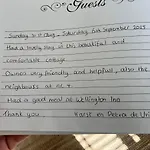 Guests
Sunday 31st Aug - Saturday 6th September 2025
Had a lovely stay at this beautiful and
comfortable cottage
Owners very friendly and helpful, also the
neighbours at nr 4.
Had a good meal at Wellington Inn
Thank you, Karst en Petra de Vri